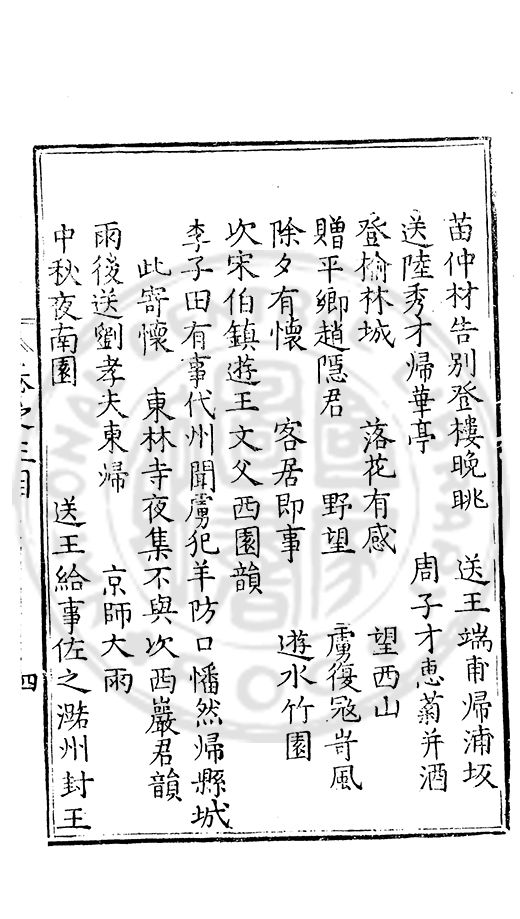 苗仲材告別登樓晚眺　送王端甫歸浦坂
送陸秀才歸華亭　周子才惠菊并酒
登榆林城　落花有感　望西山
贈平鄉趙隱君　野望　虜復寇岢風
除夕有懷　客居即事　遊水竹園
次宋伯鎮遊王文父西園韻
李子田有事代州聞虜犯羊防口幡然歸縣城
此寄懷　東林寺夜集不與次西巖君韻
雨後送劉孝夫東歸　京師大雨
中秋夜南園　送王給事佐之潞州封王
卷之三目　四